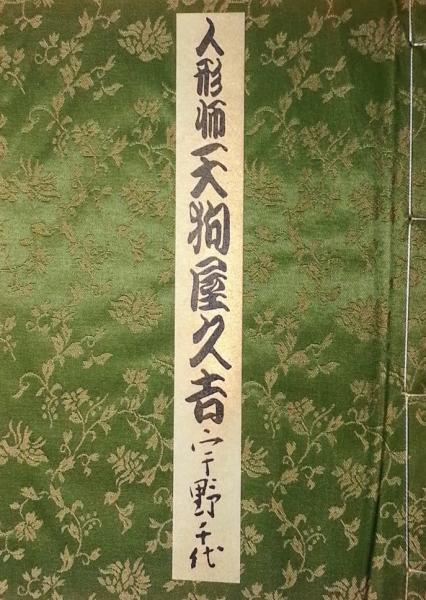 人形師天狗屋久吉 宇野千代